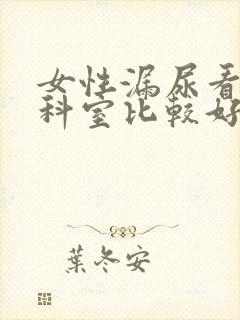 女性漏尿看
科室比較好
葉冬安